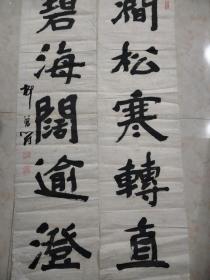 澗松寒轉直
碧海闊逾澄